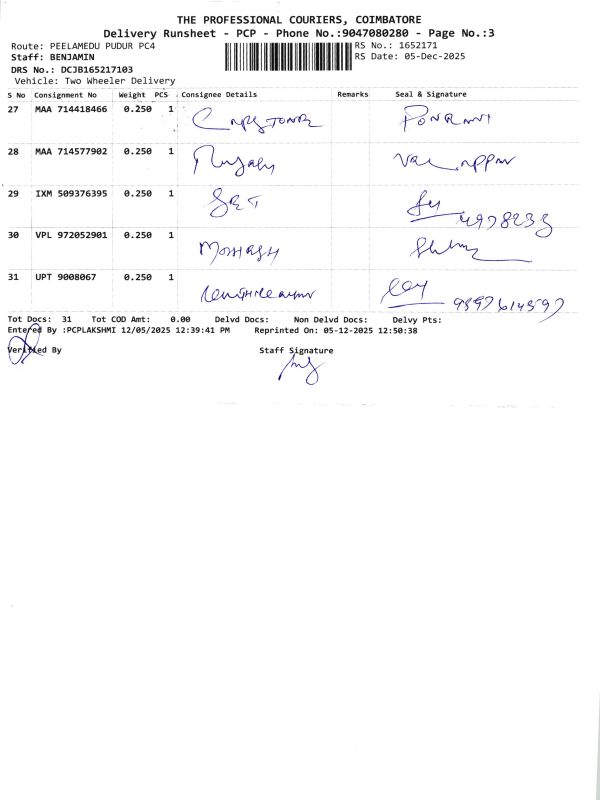 THE PROFESSIONAL COURIERS, COIMBATORE
Delivery Runsheet - PCP - Phone No.:9047080280 - Page No.:3
Route: PEELAMEDU PUDUR PC4
RS No.: 1652171
Staff: BENJAMIN
RS Date: 05-Dec-2025
DRS No.: DCJB165217103
Vehicle: Two Wheeler Delivery
S No Consignment No Weight PCS Consignee Details Remarks Seal & Signature
27 MAA 714418466 0.250 1
28 MAA 714577902 0.250 1
29 IXM 509376395 0.250 1
30 VPL 972052901 0.250 1
31 UPT 9008067 0.250 1
Tot Docs: 31 Tot COD Amt: 0.00 Delvd Docs: Non Delvd Docs: Delvy Pts:
Entered By :PCPLAKSHMI 12/05/2025 12:39:41 PM Reprinted On: 05-12-2025 12:50:38
Verified By Staff Signature